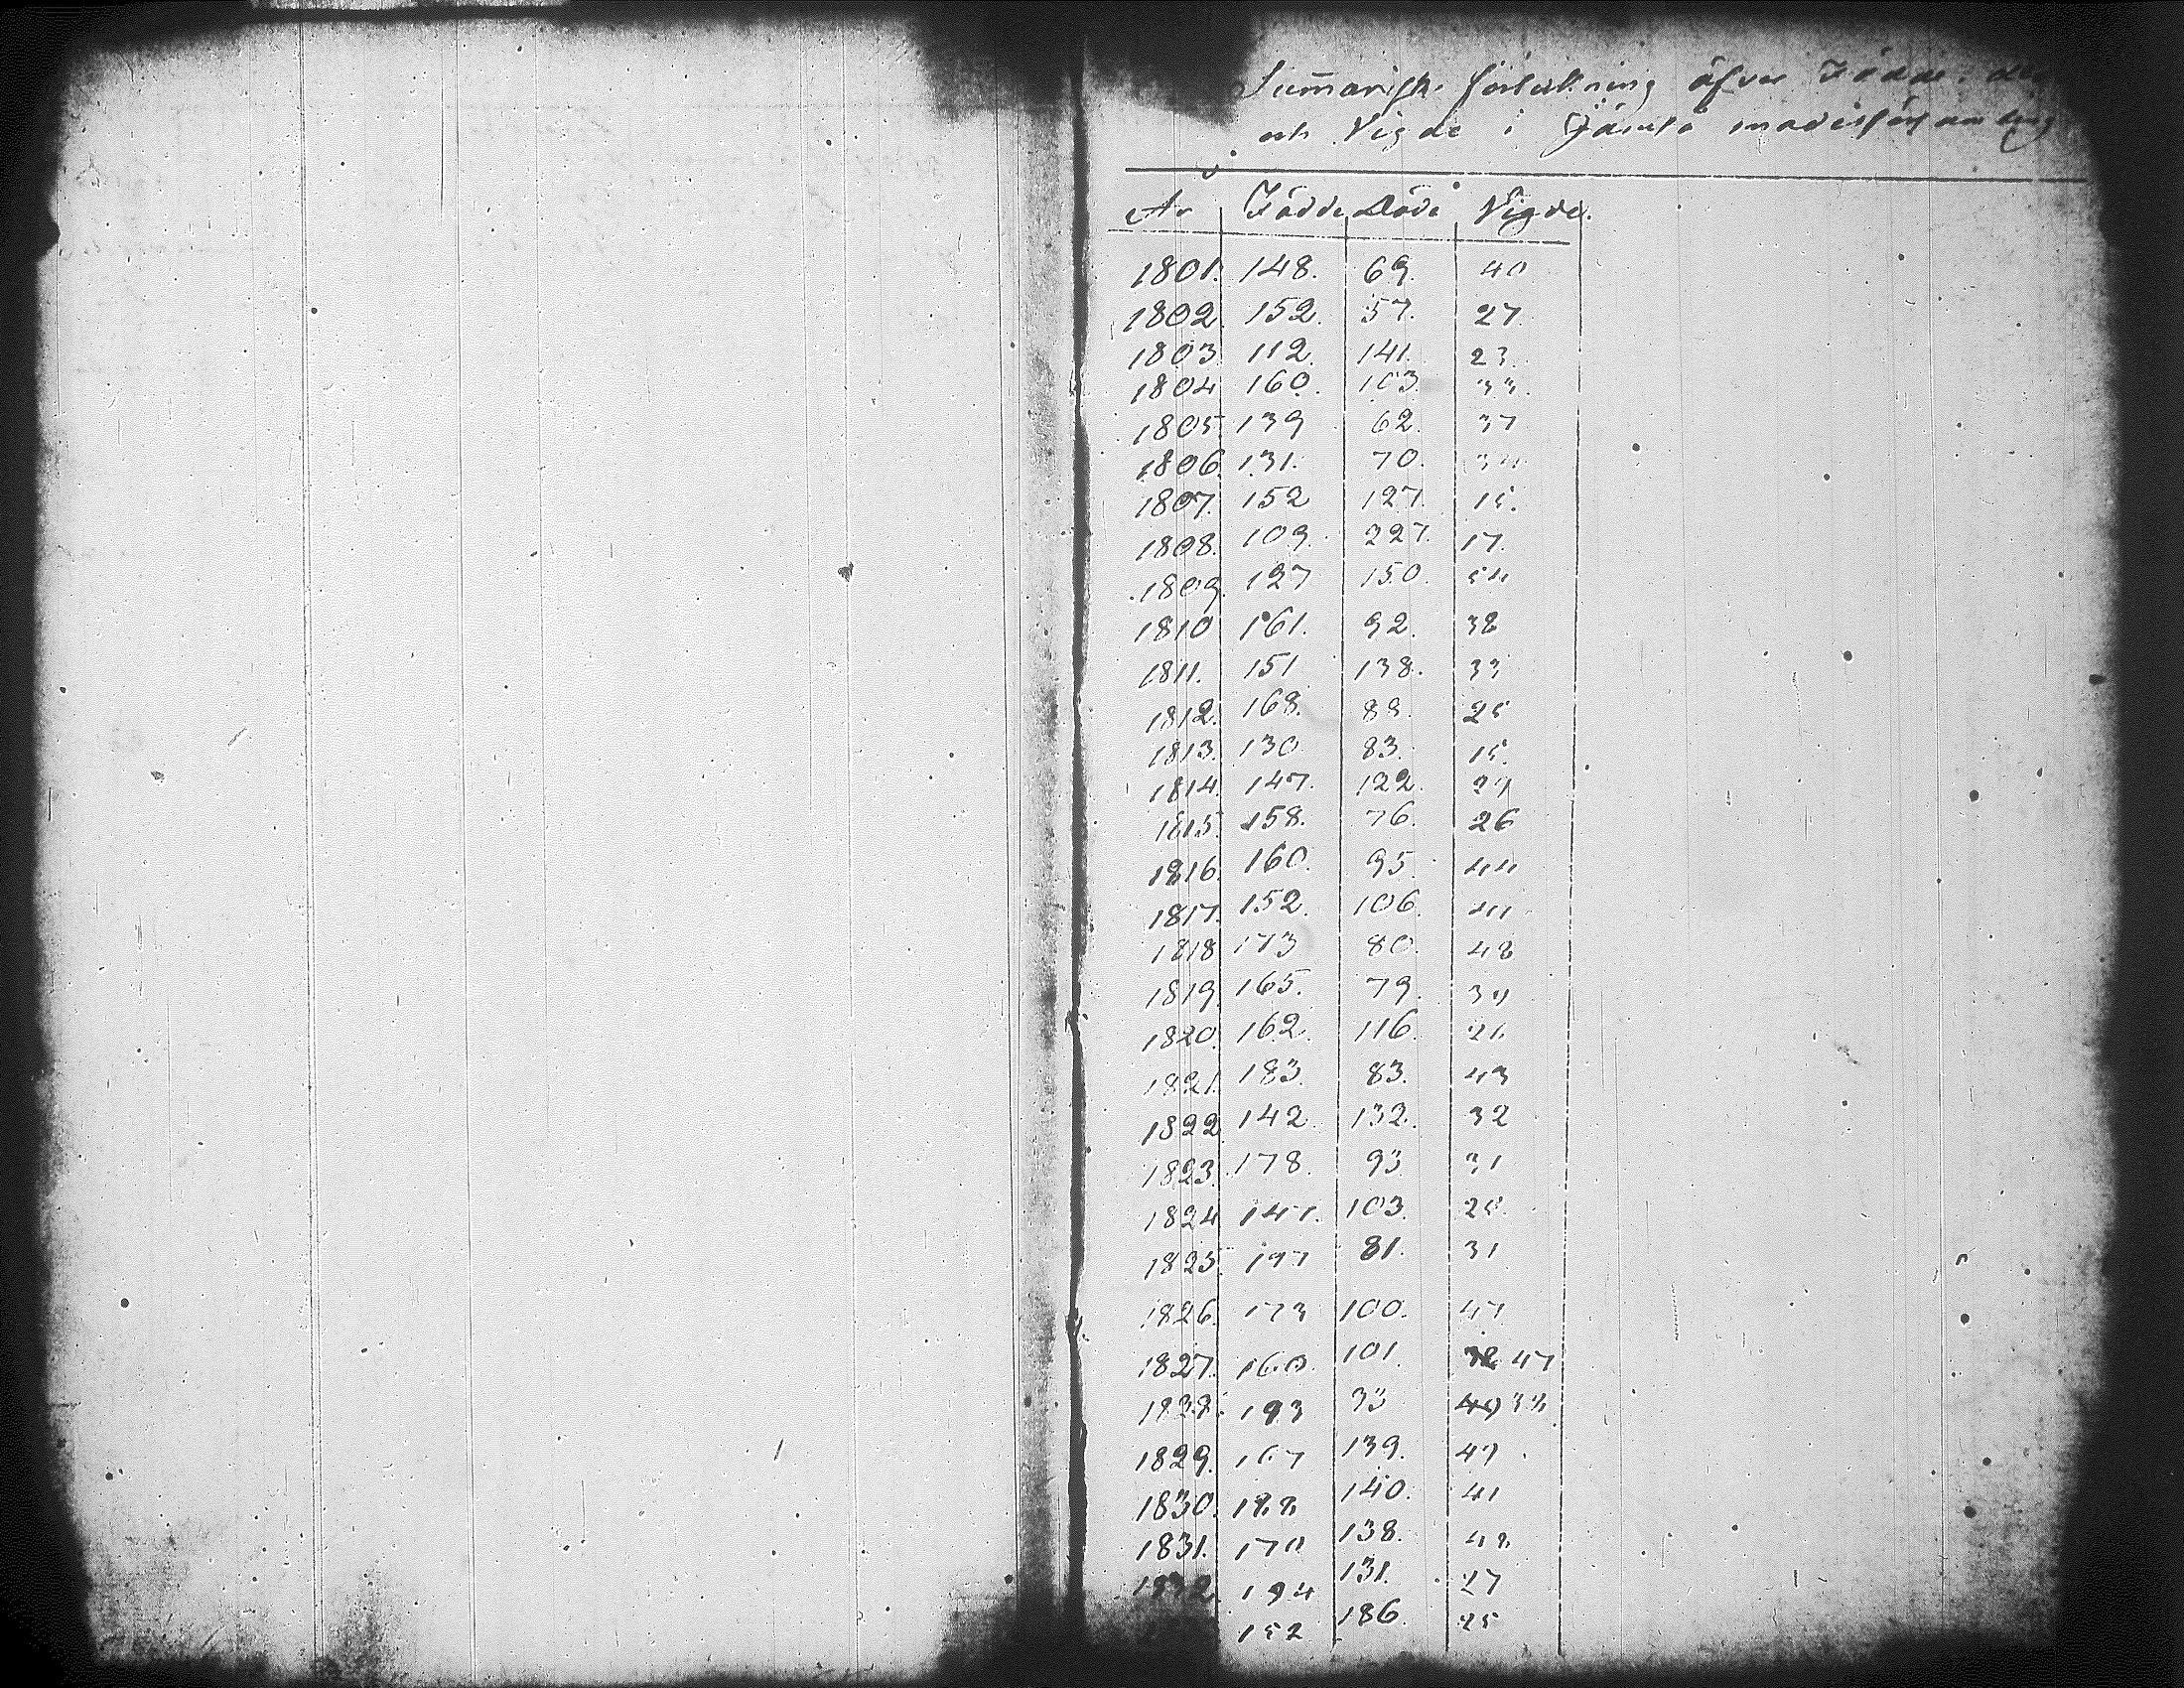 Summarisk förteckning öfver Födde, 
och Vigde i Jämsä modersförsamling
År Födde Döde Vigde.
1801. 148. 69. 40
1802. 152. 57. 27.
1803. 112. 141. 23.
1804 160. 103. 33.
1805. 139 62. 37
1806. 131. 70.
1807. 152 127. 15.
1808. 109. 227. 17.
1809. 127 150.
1810 161. 92. 38
1811. 151 138. 33
1812. 168. 88. 25
1813. 130 83. 15.
1814. 147. 122. 29
1815. 158. 76. 26
1816. 160. 95. 44
1817. 152. 106.
1818 173 80. 48
1819. 165. 79. 39
1820. 162. 116. 21.
1821. 183. 83. 43
1822. 142. 132. 32
1823. 178. 93 31
1824 147. 103. 28.
1825. 197 81. 31
1826. 173 100. 47
1827. 160. 101. 47
1828. 193 93
1829. 167 139. 47.
1830. 188 140. 41
1831. 170 138. 48
1832. 194 131. 27
152 186. 25